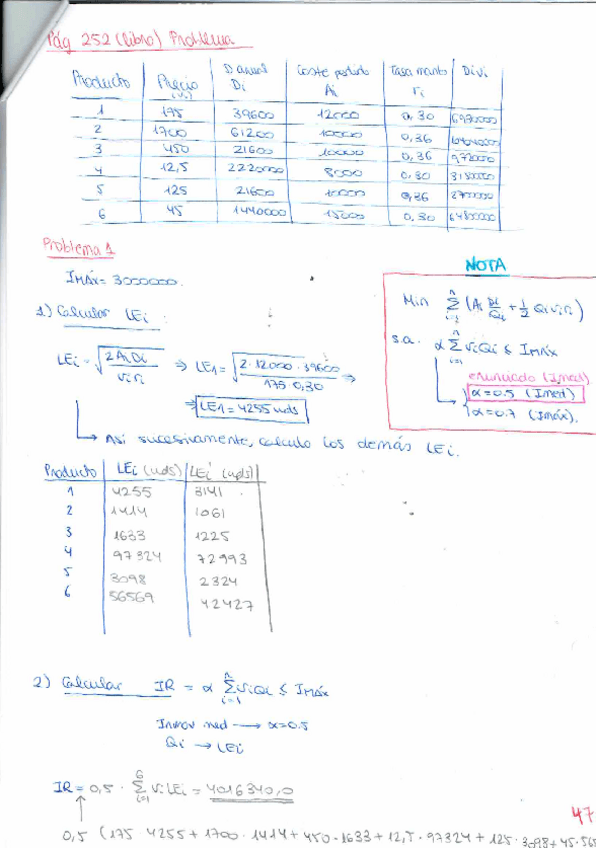 Pág 252 (libro) Problema
Producto Precio (vi) D anual Di Coste pedido Ai Tasa manto ri Divi
1 175 39600 12000 0,30 6930000
2 1700 61200 10000 0,36
3 450 21600 10000 0,36 9720000
4 12,5 2220000 8000 0,30
5 125 21600 10000 0,36 2700000
6 45 1440000 15000 0,30 64800000
Problema 1
IMÁX = 3000000.
1) Calcular LEi:
LEi = √(2AiDi / viri) ⇒ LE1 = √(2·12000·39600 / 175·0,30) ⇒
⇒ LE1 = 4255 uds
↳ Así sucesivamente, calculo los demás LEi.
NOTA
Min Σ i=1 n (Ai Di/Qi + 1/2 Qi vi ri)
s.a. α Σ i=1 n viQi ≤ IMÁX
enunciado (Imed)
α=0.5 (Imed)
α=0.7 (Imáx).
Producto LEi (uds) LEi (uds)
1 4255 3141
2 1414 1061
3 1633 1225
4 97324 72993
5 3098 2324
6 56569 42427
2) Calcular IR = α Σ i=1 n viQi ≤ IMÁX
Inmov med → α=0.5
Qi → LEi
IR = 0,5 · Σ i=1 6 vi LEi = 4016340,0
47
0,5 (175·4255 + 1700·1414 + 450·1633 + 12,5·97324 + 125·3098 + 45·565